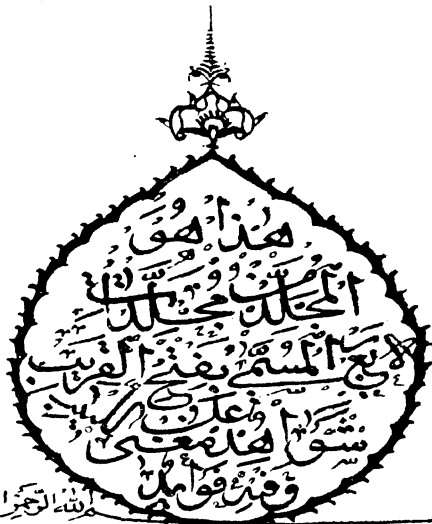 هٰذَا هُوَ
المجلد من مجلدات
لاربع المسمّى بفتح القريب
على
شواهد مغنى
وفيه فوائد
ـم الله الرحمن ا